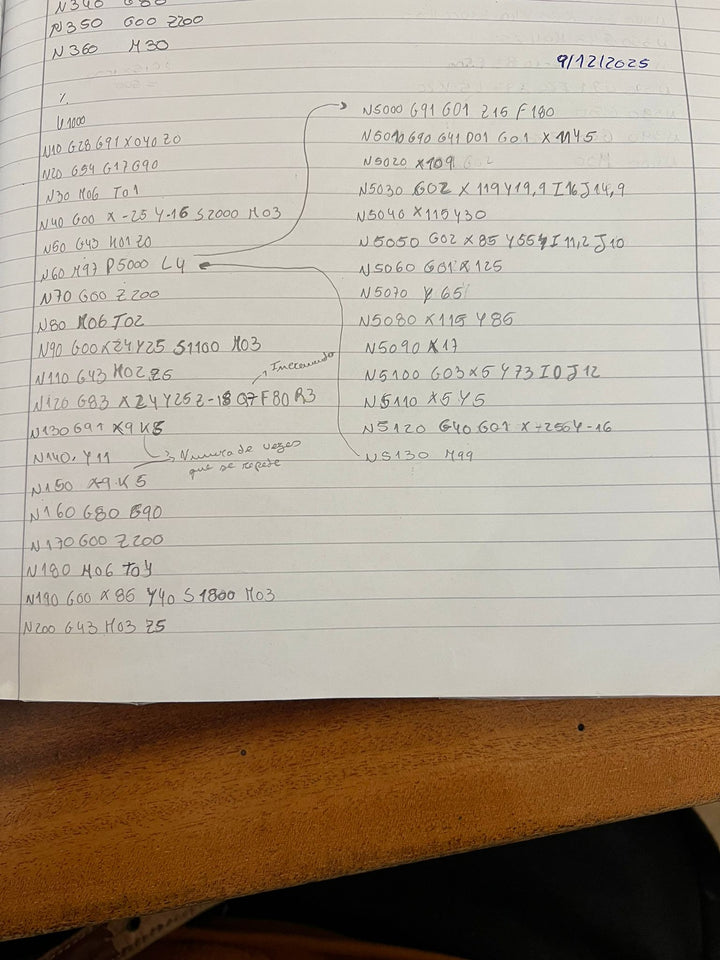 N340 G80
N350 G00 Z200
N360 M30
9/12/2025
%
U1000
N10 G28 G91 X0Y0 Z0
N20 G54 G17 G90
N30 M06 T01
N40 G00 X-25 Y-16 S2000 M03
N50 G43 H01 Z0
N60 M97 P5000 L4
N70 G00 Z200
N80 M06 T02
N90 G00 X24 Y25 S1100 M03
N110 G43 H02 Z5
Incremento
N120 G83 X24 Y25 Z-18 Q7 F80 R3
N130 G91 X9 K5
N140 Y11
Número de vezes
que se repete
N150 X9 K5
N160 G80 G90
N170 G00 Z200
N180 M06 T04
N190 G00 X85 Y40 S1800 M03
N200 G43 H03 Z5
N5000 G91 G01 Z15 F180
N5010 G90 G41 D01 G01 X Y45
N5020 X109
N5030 G02 X119 Y19,9 I16 J14,9
N5040 X115 Y30
N5050 G02 X85 Y55 I11,2 J10
N5060 G01 X125
N5070 Y65
N5080 X115 Y85
N5090 X17
N5100 G03 X5 Y73 I0 J12
N5110 X5 Y5
N5120 G40 G01 X-25 Y-16
N5130 M99